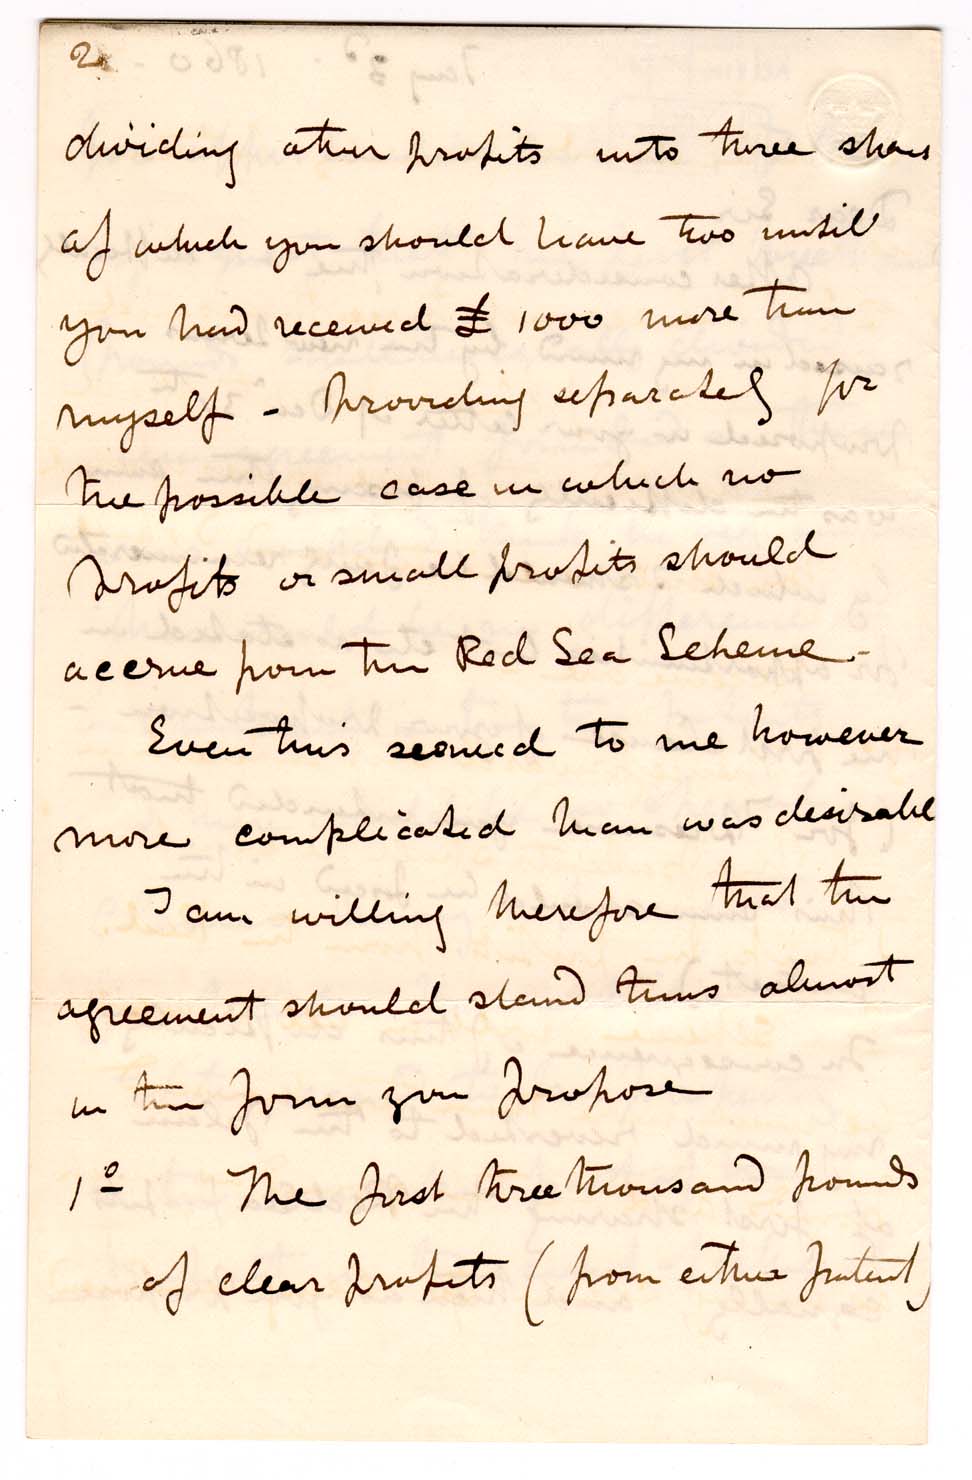 2
dividing other profits into three shares
of which you should have two until
you had received £ 1000 more than
myself - providing separately for
the possible case in which no
profits or small profits should
accrue from the Red Sea Scheme -
Even this seemed to me however
more complicated than was desirable
I am willing therefore that the
agreement should stand thus almost
in the form you propose
1º The first three thousand pounds
of clear profits (from either patent)